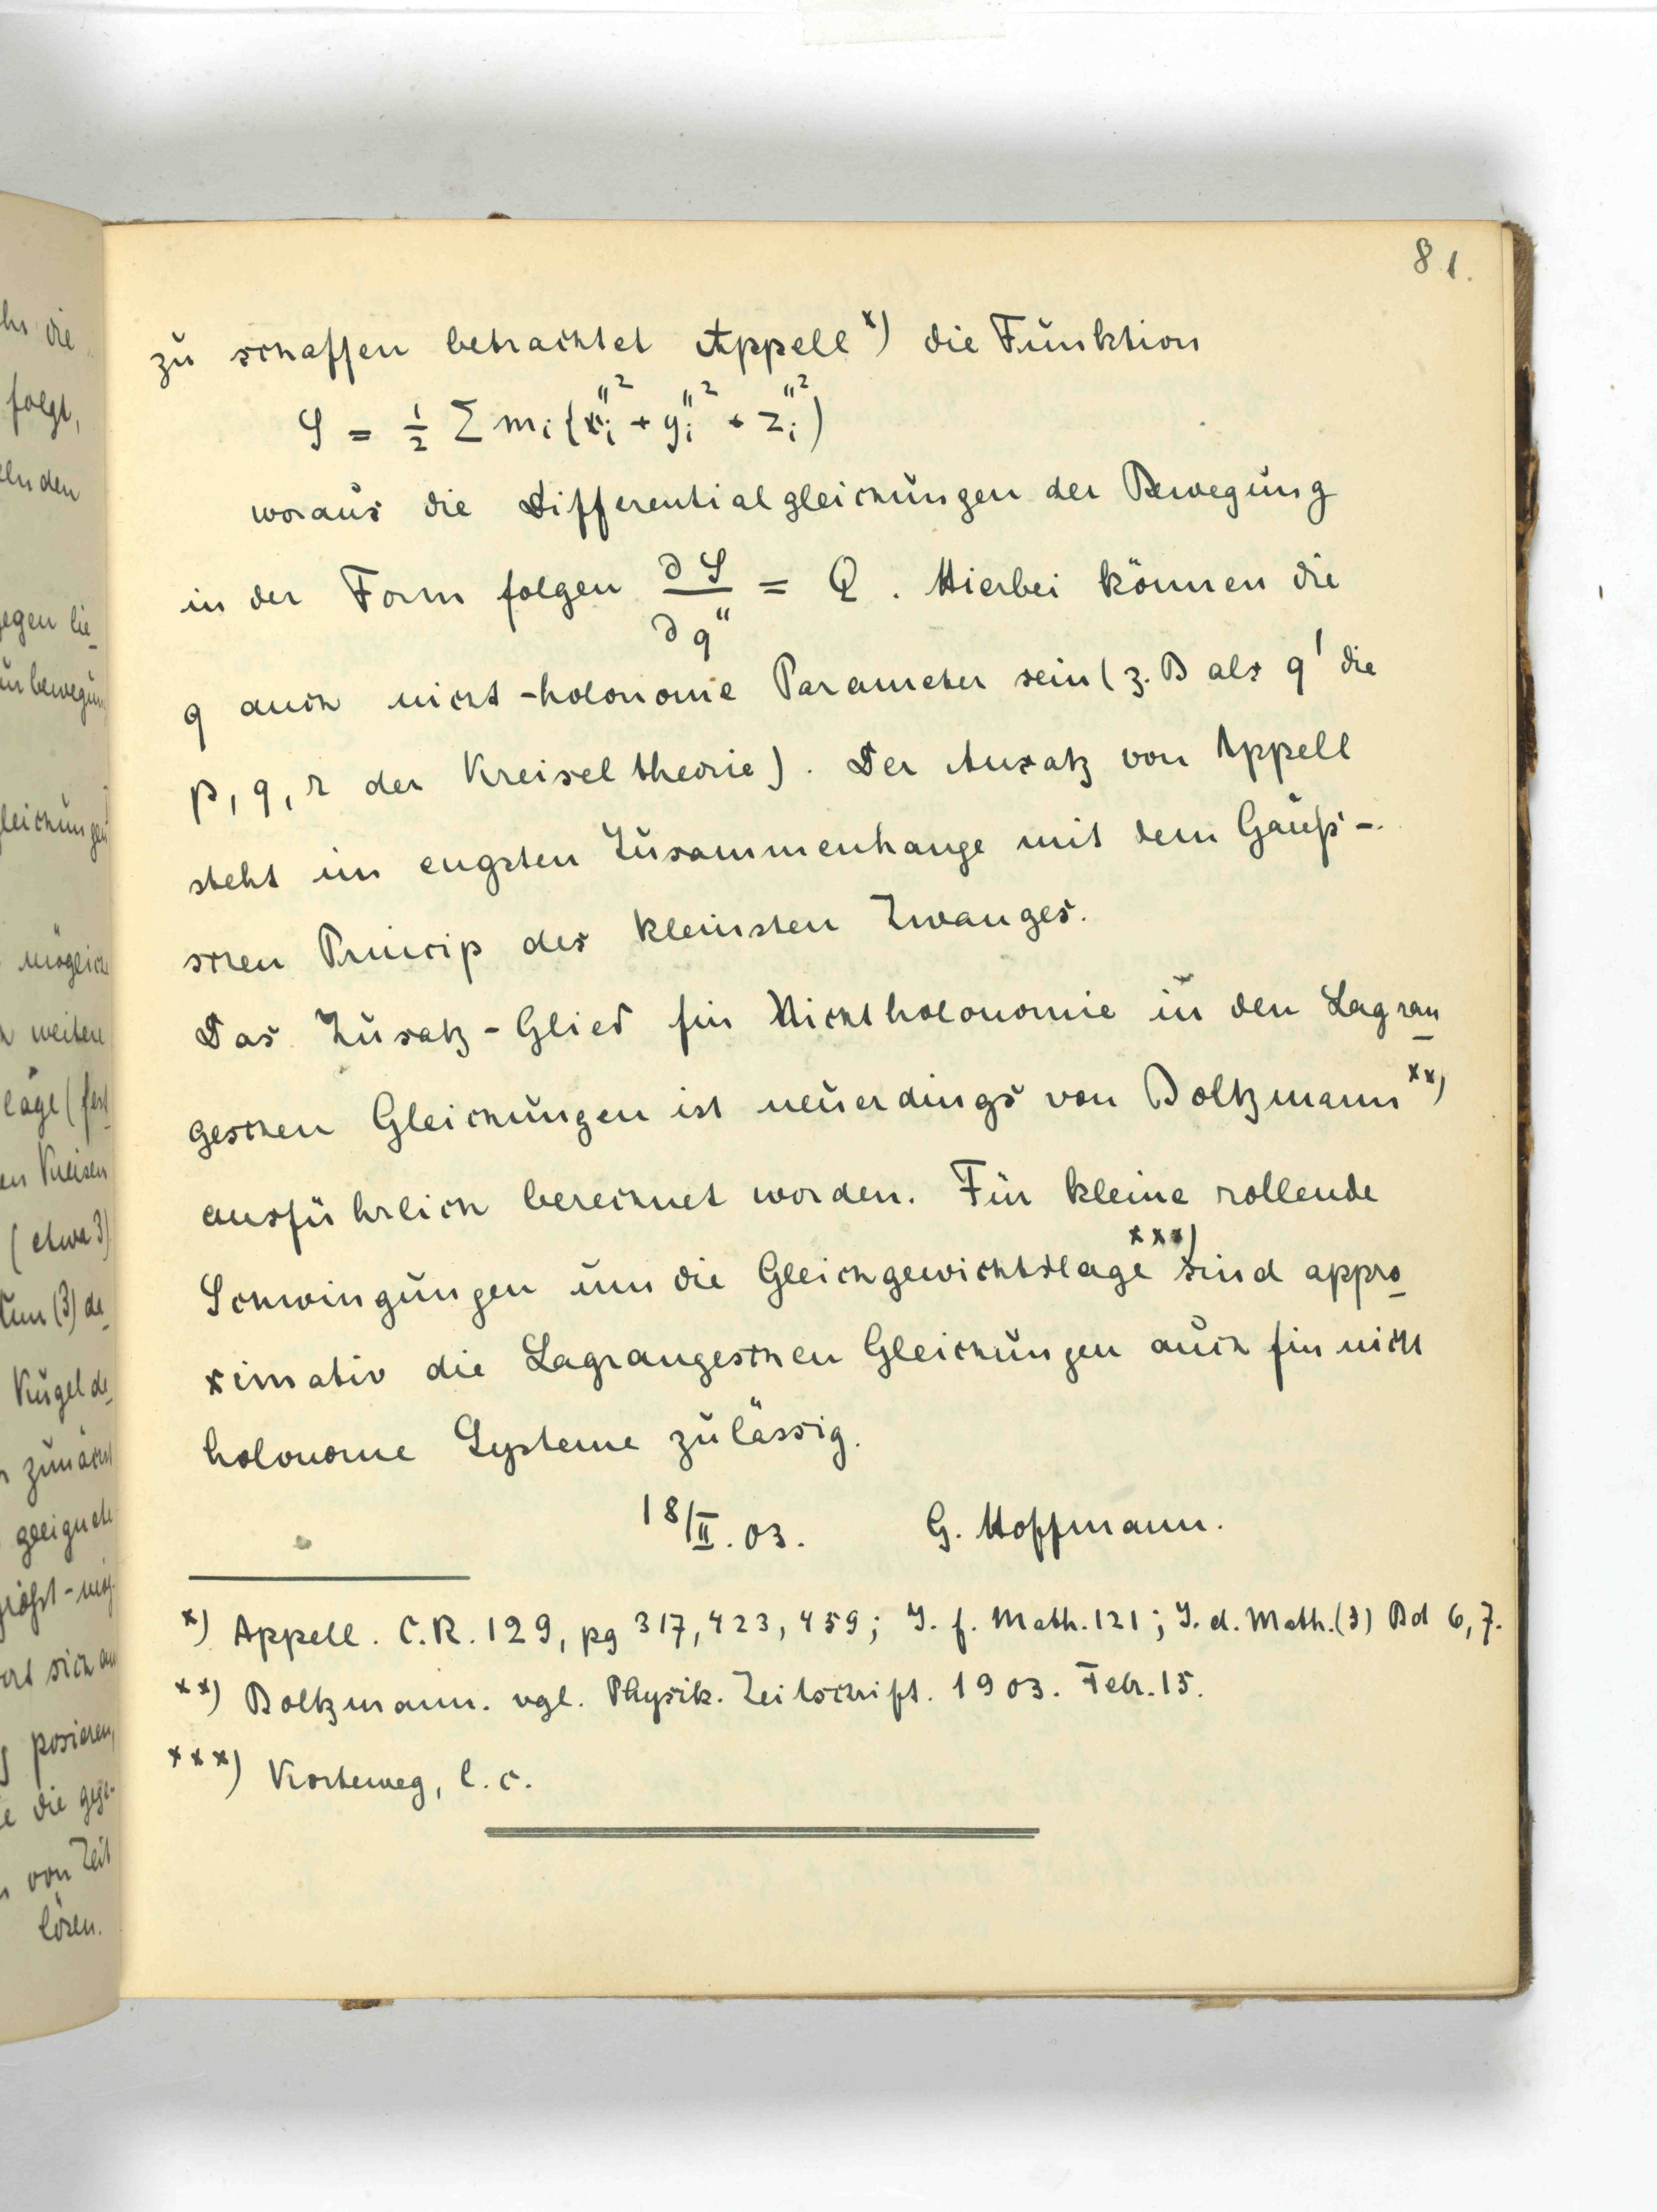 81.
zu schaffen betrachtet Appell x) die Funktion
S = 1/2 Σ mi (xi''² + yi''² + zi''²)
woraus die Differentialgleichungen der Bewegung
in der Form folgen ∂S/∂q'' = Q. Hierbei können die
q auch nicht-holonome Parameter sein (z. B als q' die
p, q, r der Kreiseltheorie). Der Ansatz von Appell
steht im engsten Zusammenhange mit dem Gauß-
schen Princip des kleinsten Zwanges.
Das Zusatz-Glied für Nichtholonomie in den Lagran
geschen Gleichungen ist neuerdings von Boltzmann xx)
ausführlich berechnet worden. Für kleine rollende
Schwingungen um die Gleichgewichtslage xxx) sind appro
ximativ die Lagrangeschen Gleichungen auch für nicht
holonome Systeme zulässig.
18/II. 03. G. Hoffmann.
x) Appell. C.R. 129, pg 317, 423, 459; J. f. Math. 121; J. d. Math. (3) Bd 6, 7.
xx) Boltzmann. vgl. Physik. Zeitschrift. 1903. Febr. 15.
xxx) Korteweg, l. c.
hs die
folgt,
eln den
egen lie
un bewegun
leichungen
möglich
weitere
lage (fest
en Kreisen
(etwa 3)
(3) de
Kugel de
zunächst
geeignete
sich
von Zeit
lösen.